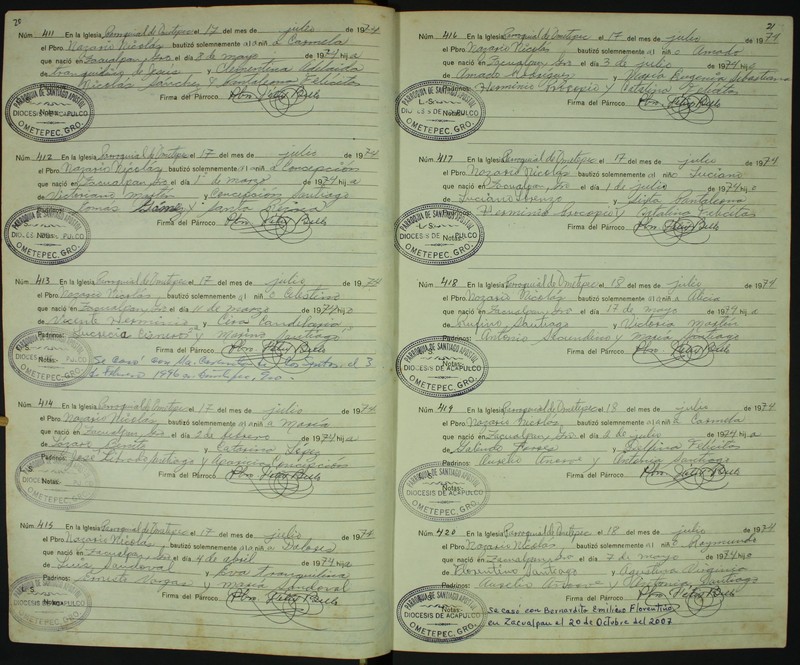 20
Núm. 411 En la Iglesia Parroquial de Ometepec el 17 del mes de julio de 1974
el Pbro. Nazario Nicolás bautizó solemnemente a l a niñ a Carmela
que nació en Zacualpan, Gro. el día 8 de mayo de 1974 hij a
de Tranquilino de Jesús y Clementina Adelaida
Nicolás Sánchez y Pantaleona Felícitas
Firma del Párroco
PARROQUIA DE SANTIAGO APOSTOL
Notas:
DIOCESIS DE ACAPULCO
OMETEPEC, GRO.
Núm. 412 En la Iglesia Parroquial de Ometepec el 17 del mes de julio de 1974
el Pbro. Nazario Nicolás bautizó solemnemente a l a niñ a Concepción
que nació en Zacualpan, Gro. el día 1° de marzo de 1974 hij a
de Victoriano Martín y Concepción Santiago
Tomás Gómez y Santa
Firma del Párroco
PARROQUIA DE SANTIAGO APOSTOL
Notas:
OMETEPEC, GRO.
Núm. 413 En la Iglesia Parroquial de Ometepec el 17 del mes de julio de 1974
el Pbro. Nazario Nicolás bautizó solemnemente a l niñ o Celestino
que nació en Zacualpan, Gro. el día 11 de marzo de 1974 hij o
de Vicente Herminio y Cira Candelaria
Padrinos: Lucrecia y Merino Santiago
Firma del Párroco
Notas: Se casó con Ma. de los Santos el 3
de Febrero 1996 en Ometepec, Gro.
OMETEPEC, GRO.
Núm. 414 En la Iglesia Parroquial de Ometepec el 17 del mes de julio de 1974
el Pbro. Nazario Nicolás bautizó solemnemente a l a niñ a María
que nació en Zacualpan, Gro. el día 2 de febrero de 1974 hij a
de Lázaro y Catarina López
Padrinos: José Santiago y Concepción
Firma del Párroco
Notas:
DIOCESIS DE ACAPULCO
OMETEPEC, GRO.
Núm. 415 En la Iglesia Parroquial de Ometepec el 17 del mes de julio de 1974
el Pbro. Nazario Nicolás bautizó solemnemente a l a niñ a Dolores
que nació en Zacualpan, Gro. el día 4 de abril de 1974 hij a
de Luis Sandoval y Eva Tranquilina
Padrinos: Ernesto Vargas y María Sandoval
Firma del Párroco
PARROQUIA DE SANTIAGO APOSTOL
L S Notas:
DIOCESIS DE ACAPULCO
OMETEPEC, GRO.
21
Núm. 416 En la Iglesia Parroquial de Ometepec el 17 del mes de julio de 1974
el Pbro. Nazario Nicolás bautizó solemnemente a l niñ o Amado
que nació en Zacualpan, Gro. el día 3 de julio de 1974 hij o
de Amado Rodríguez y María Eugenia Sebastiana
Padrinos: Herminio Procopio y Felícitas
Firma del Párroco
PARROQUIA DE SANTIAGO APOSTOL
L S Notas:
DIOCESIS DE ACAPULCO
OMETEPEC, GRO.
Núm. 417 En la Iglesia Parroquial de Ometepec el 17 del mes de julio de 1974
el Pbro. Nazario Nicolás bautizó solemnemente a l niñ o Luciano
que nació en Zacualpan, Gro. el día 1 de julio de 1974 hij o
de Luciano Lorenzo y Lidia Pantaleona
Herminio Procopio y Catalina Felícitas
Firma del Párroco
PARROQUIA DE SANTIAGO APOSTOL
L S Notas:
DIOCESIS DE ACAPULCO
OMETEPEC, GRO.
Núm. 418 En la Iglesia Parroquial de Ometepec el 18 del mes de julio de 1974
el Pbro. Nazario Nicolás bautizó solemnemente a l a niñ a Alicia
que nació en Zacualpan, Gro. el día 17 de mayo de 1974 hij a
de Rufino Santiago y Victoria Martín
Padrinos: Antonio Secundino y María Santiago
Firma del Párroco
PARROQUIA DE SANTIAGO APOSTOL
Notas:
DIOCESIS DE ACAPULCO
OMETEPEC, GRO.
Núm. 419 En la Iglesia Parroquial de Ometepec el 18 del mes de julio de 1974
el Pbro. Nazario Nicolás bautizó solemnemente a l a niñ a Carmela
que nació en Zacualpan, Gro. el día 2 de julio de 1974 hij a
de Galindo Torres y Delfina Felícitas
Padrinos: Aurelio Añorve y Antonia Santiago
Firma del Párroco
PARROQUIA DE SANTIAGO APOSTOL
L S Notas:
DIOCESIS DE ACAPULCO
OMETEPEC, GRO.
Núm. 420 En la Iglesia Parroquial de Ometepec el 18 del mes de julio de 1974
el Pbro. Nazario Nicolás bautizó solemnemente a l niñ o Raymundo
que nació en Zacualpan, Gro. el día 7 de mayo de 1974 hij o
de Florentino Santiago y Agustina Virginia
Padrinos: Aurelio Añorve y Antonia Santiago
Firma del Párroco
PARROQUIA DE SANTIAGO APOSTOL
Notas: Se casó con Bernardita Emiliano Florentino
DIOCESIS DE ACAPULCO en Zacualpan el 20 de Octubre del 2007
OMETEPEC, GRO.